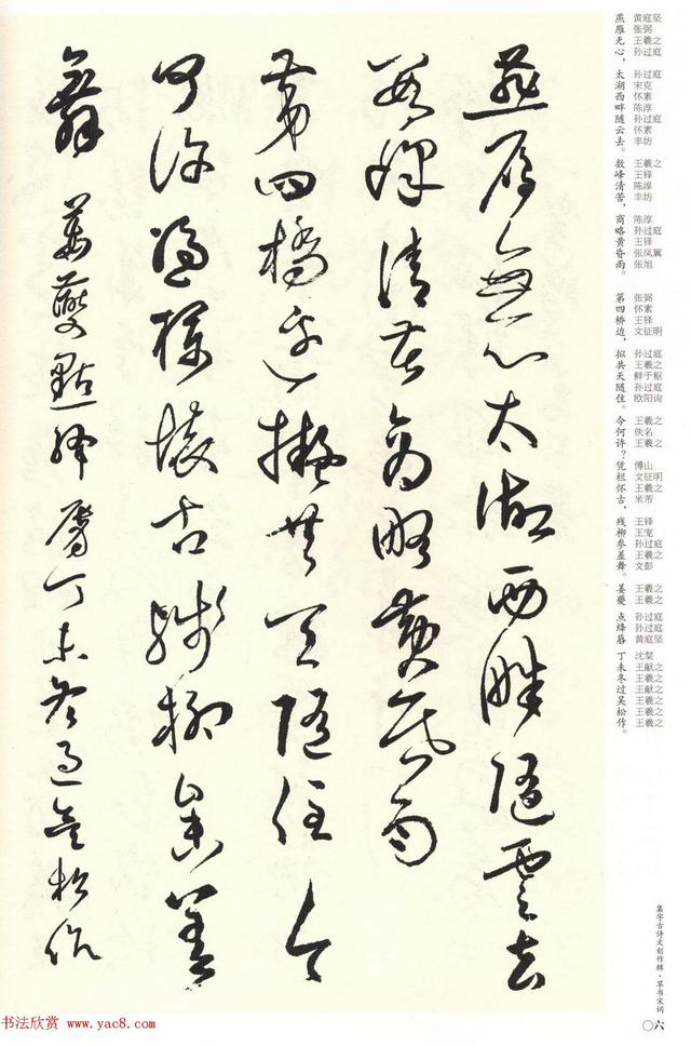 燕雁無心太湖西畔隨雲去
數峰清苦商略黃昏雨
第四橋邊擬共天隨住今
何許憑欄懷古殘柳參差
舞 姜夔點絳唇丁未冬過吳松作
燕雁无心，太湖西畔随云去。数峰清苦，商略黄昏雨。 第四桥边，拟共天随住。今何许？凭栏怀古，残柳参差舞。 姜夔 点绛唇 丁未冬过吴松作。
黄庭坚 张弼 王羲之 孙过庭 孙过庭 宋克 怀素 陈淳 孙过庭 怀素 丰坊 王羲之 王铎 陈淳 丰坊 陈淳 孙过庭 王铎 张凤翼 张旭 张弼 怀素 王铎 文征明 孙过庭 王羲之 鲜于枢 孙过庭 欧阳询 王羲之 佚名 王羲之 傅山 文征明 王羲之 米芾 王铎 王宠 孙过庭 王羲之 文彭 王羲之 王羲之 孙过庭 孙过庭 黄庭坚 沈粲 王献之 王羲之 王献之 王羲之 王羲之 王羲之
集字古诗文创作辑·草书宋词
〇六
书法欣赏 www.yac8.com